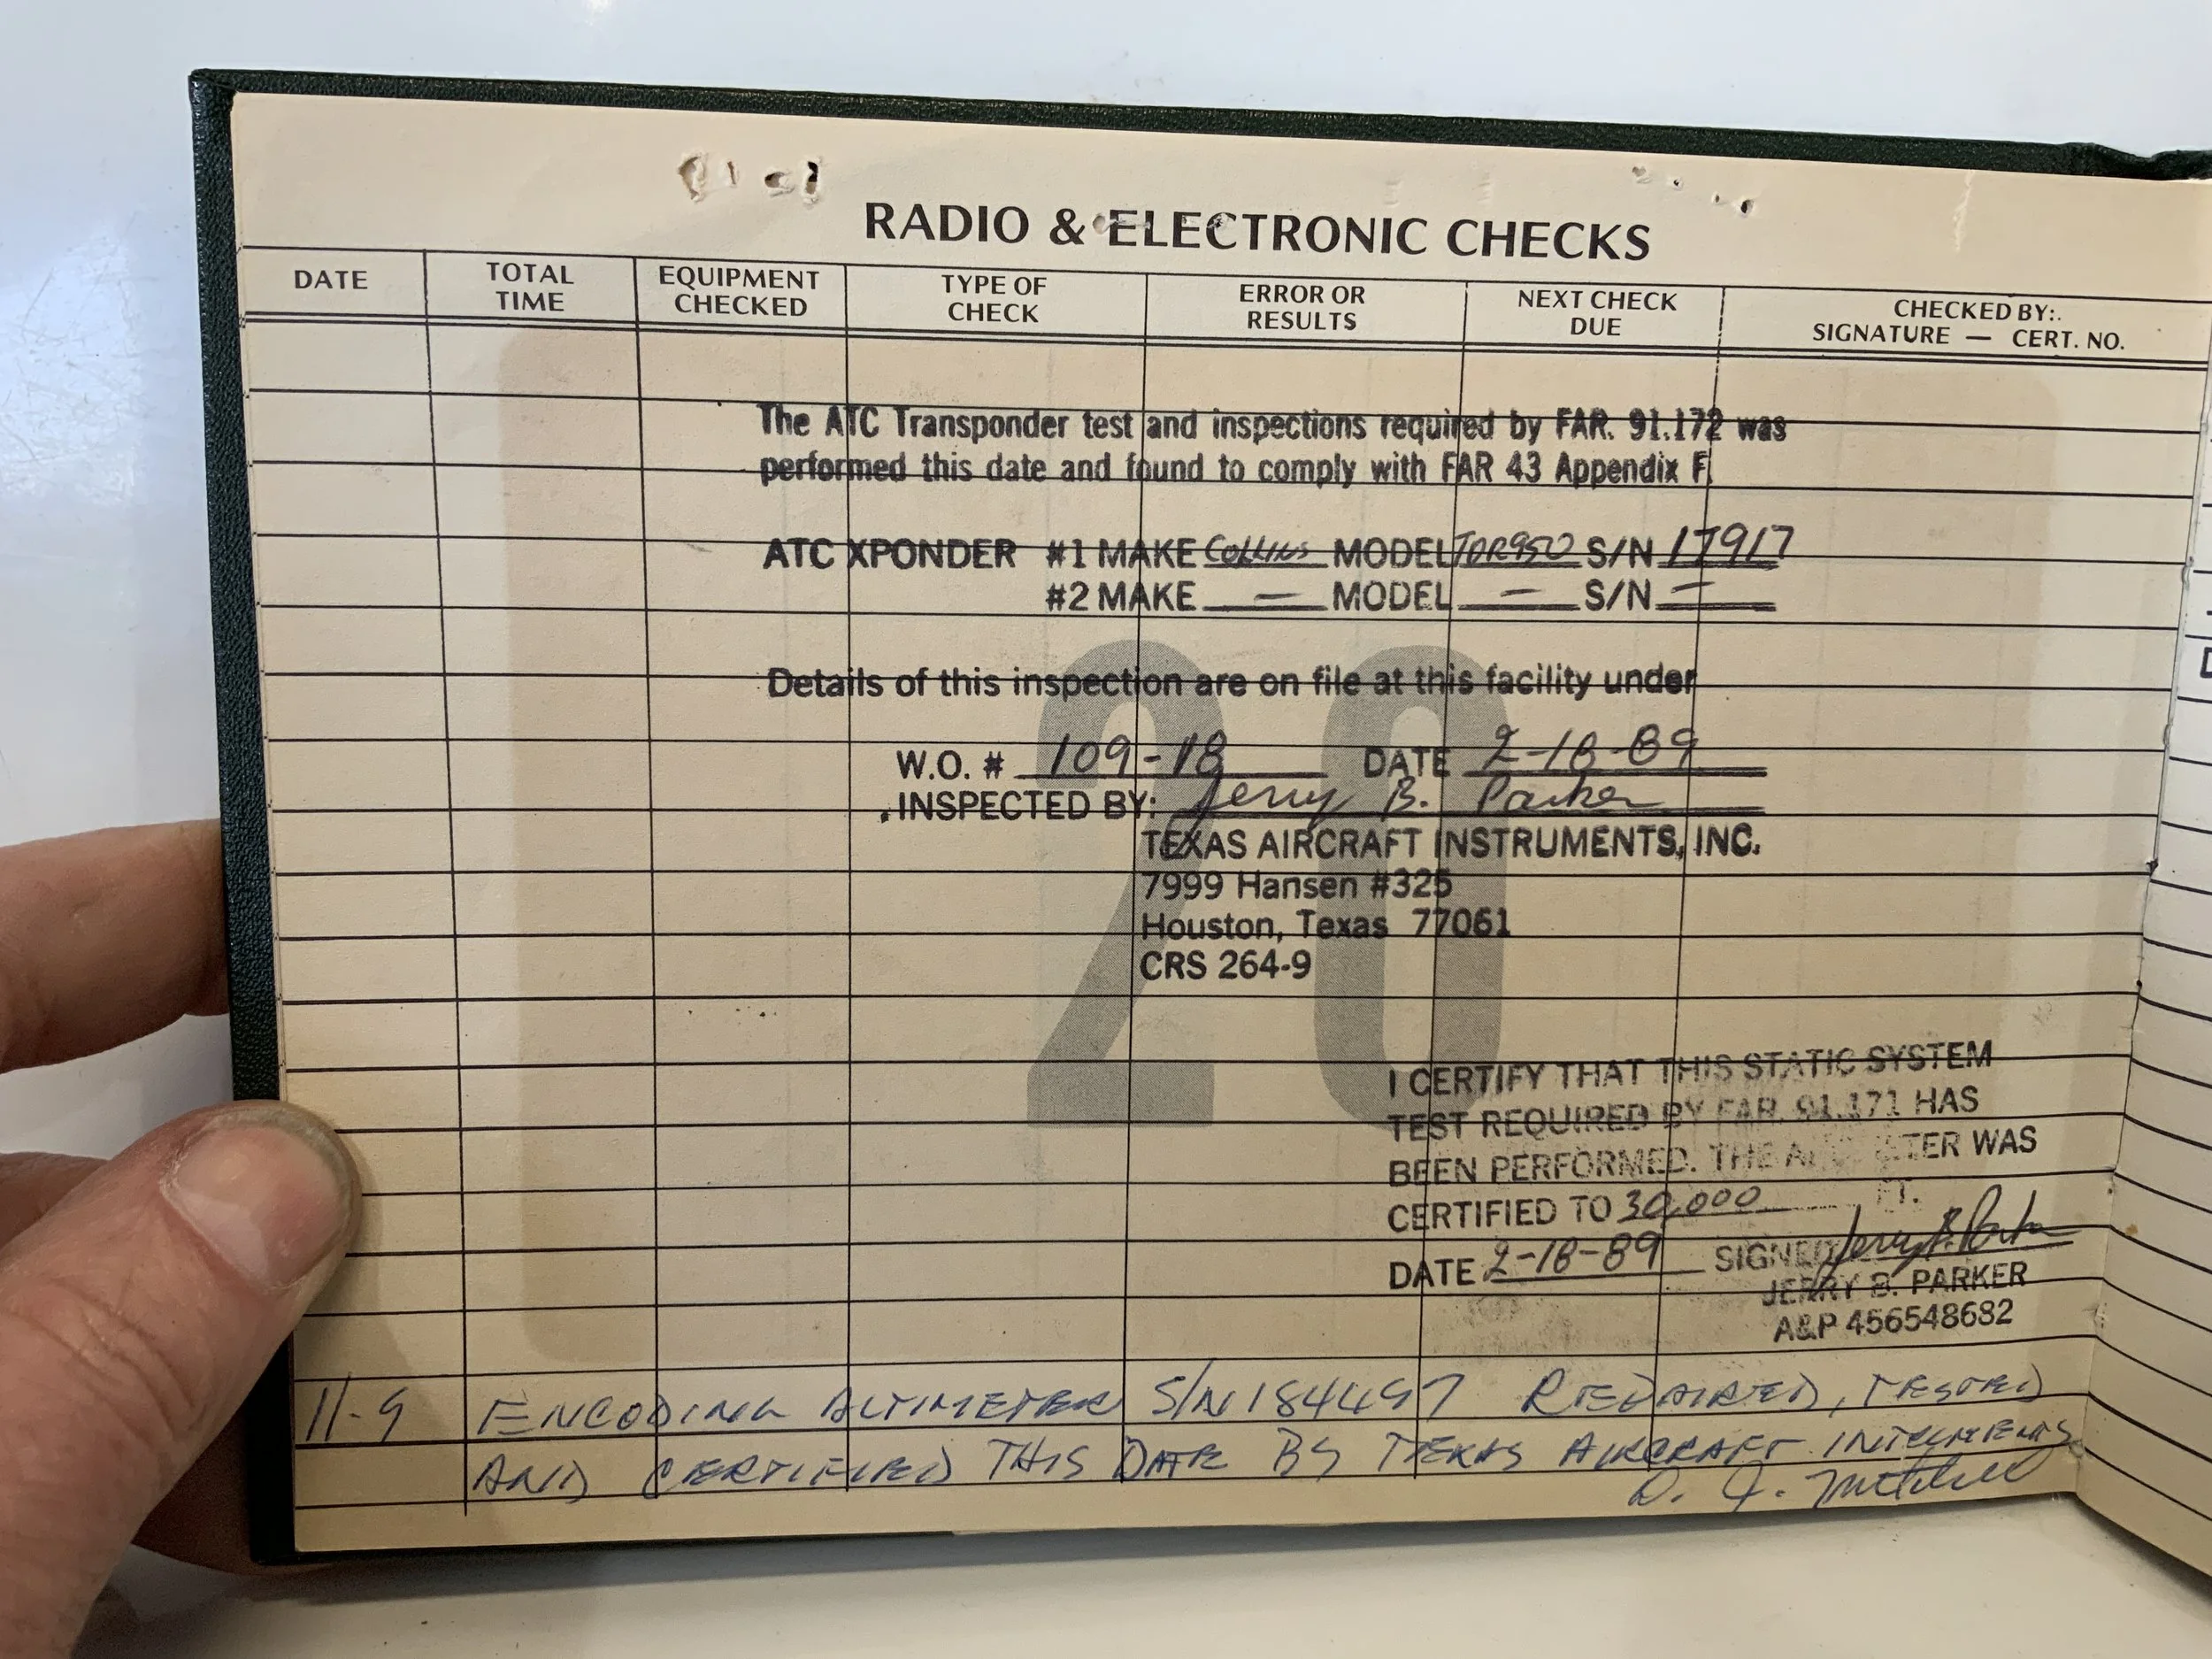 RADIO & ELECTRONIC CHECKS
DATE TOTAL TIME EQUIPMENT CHECKED TYPE OF CHECK ERROR OR RESULTS NEXT CHECK DUE CHECKED BY: SIGNATURE — CERT. NO.
The ATC Transponder test and inspections required by FAR. 91.172 was
performed this date and found to comply with FAR 43 Appendix F.
ATC XPONDER #1 MAKE Collins MODEL TDR950 S/N 17917
#2 MAKE — MODEL — S/N —
Details of this inspection are on file at this facility under
20
W.O. # 109-18 DATE 2-18-89
INSPECTED BY: Jerry B. Parker
TEXAS AIRCRAFT INSTRUMENTS, INC.
7999 Hansen #325
Houston, Texas 77061
CRS 264-9
I CERTIFY THAT THIS STATIC SYSTEM
TEST REQUIRED BY FAR. 91.171 HAS
BEEN PERFORMED. THE ALTIMETER WAS
CERTIFIED TO 30,000 FT.
DATE 2-18-89 SIGNED Jerry B. Parker
JERRY B. PARKER
A&P 456548682
11-9 ENCODING ALTIMETER S/N 184497 REPAIRED, TESTED
AND CERTIFIED THIS DATE BY TEXAS AIRCRAFT INTRUMENTS
D. J. Mitchell